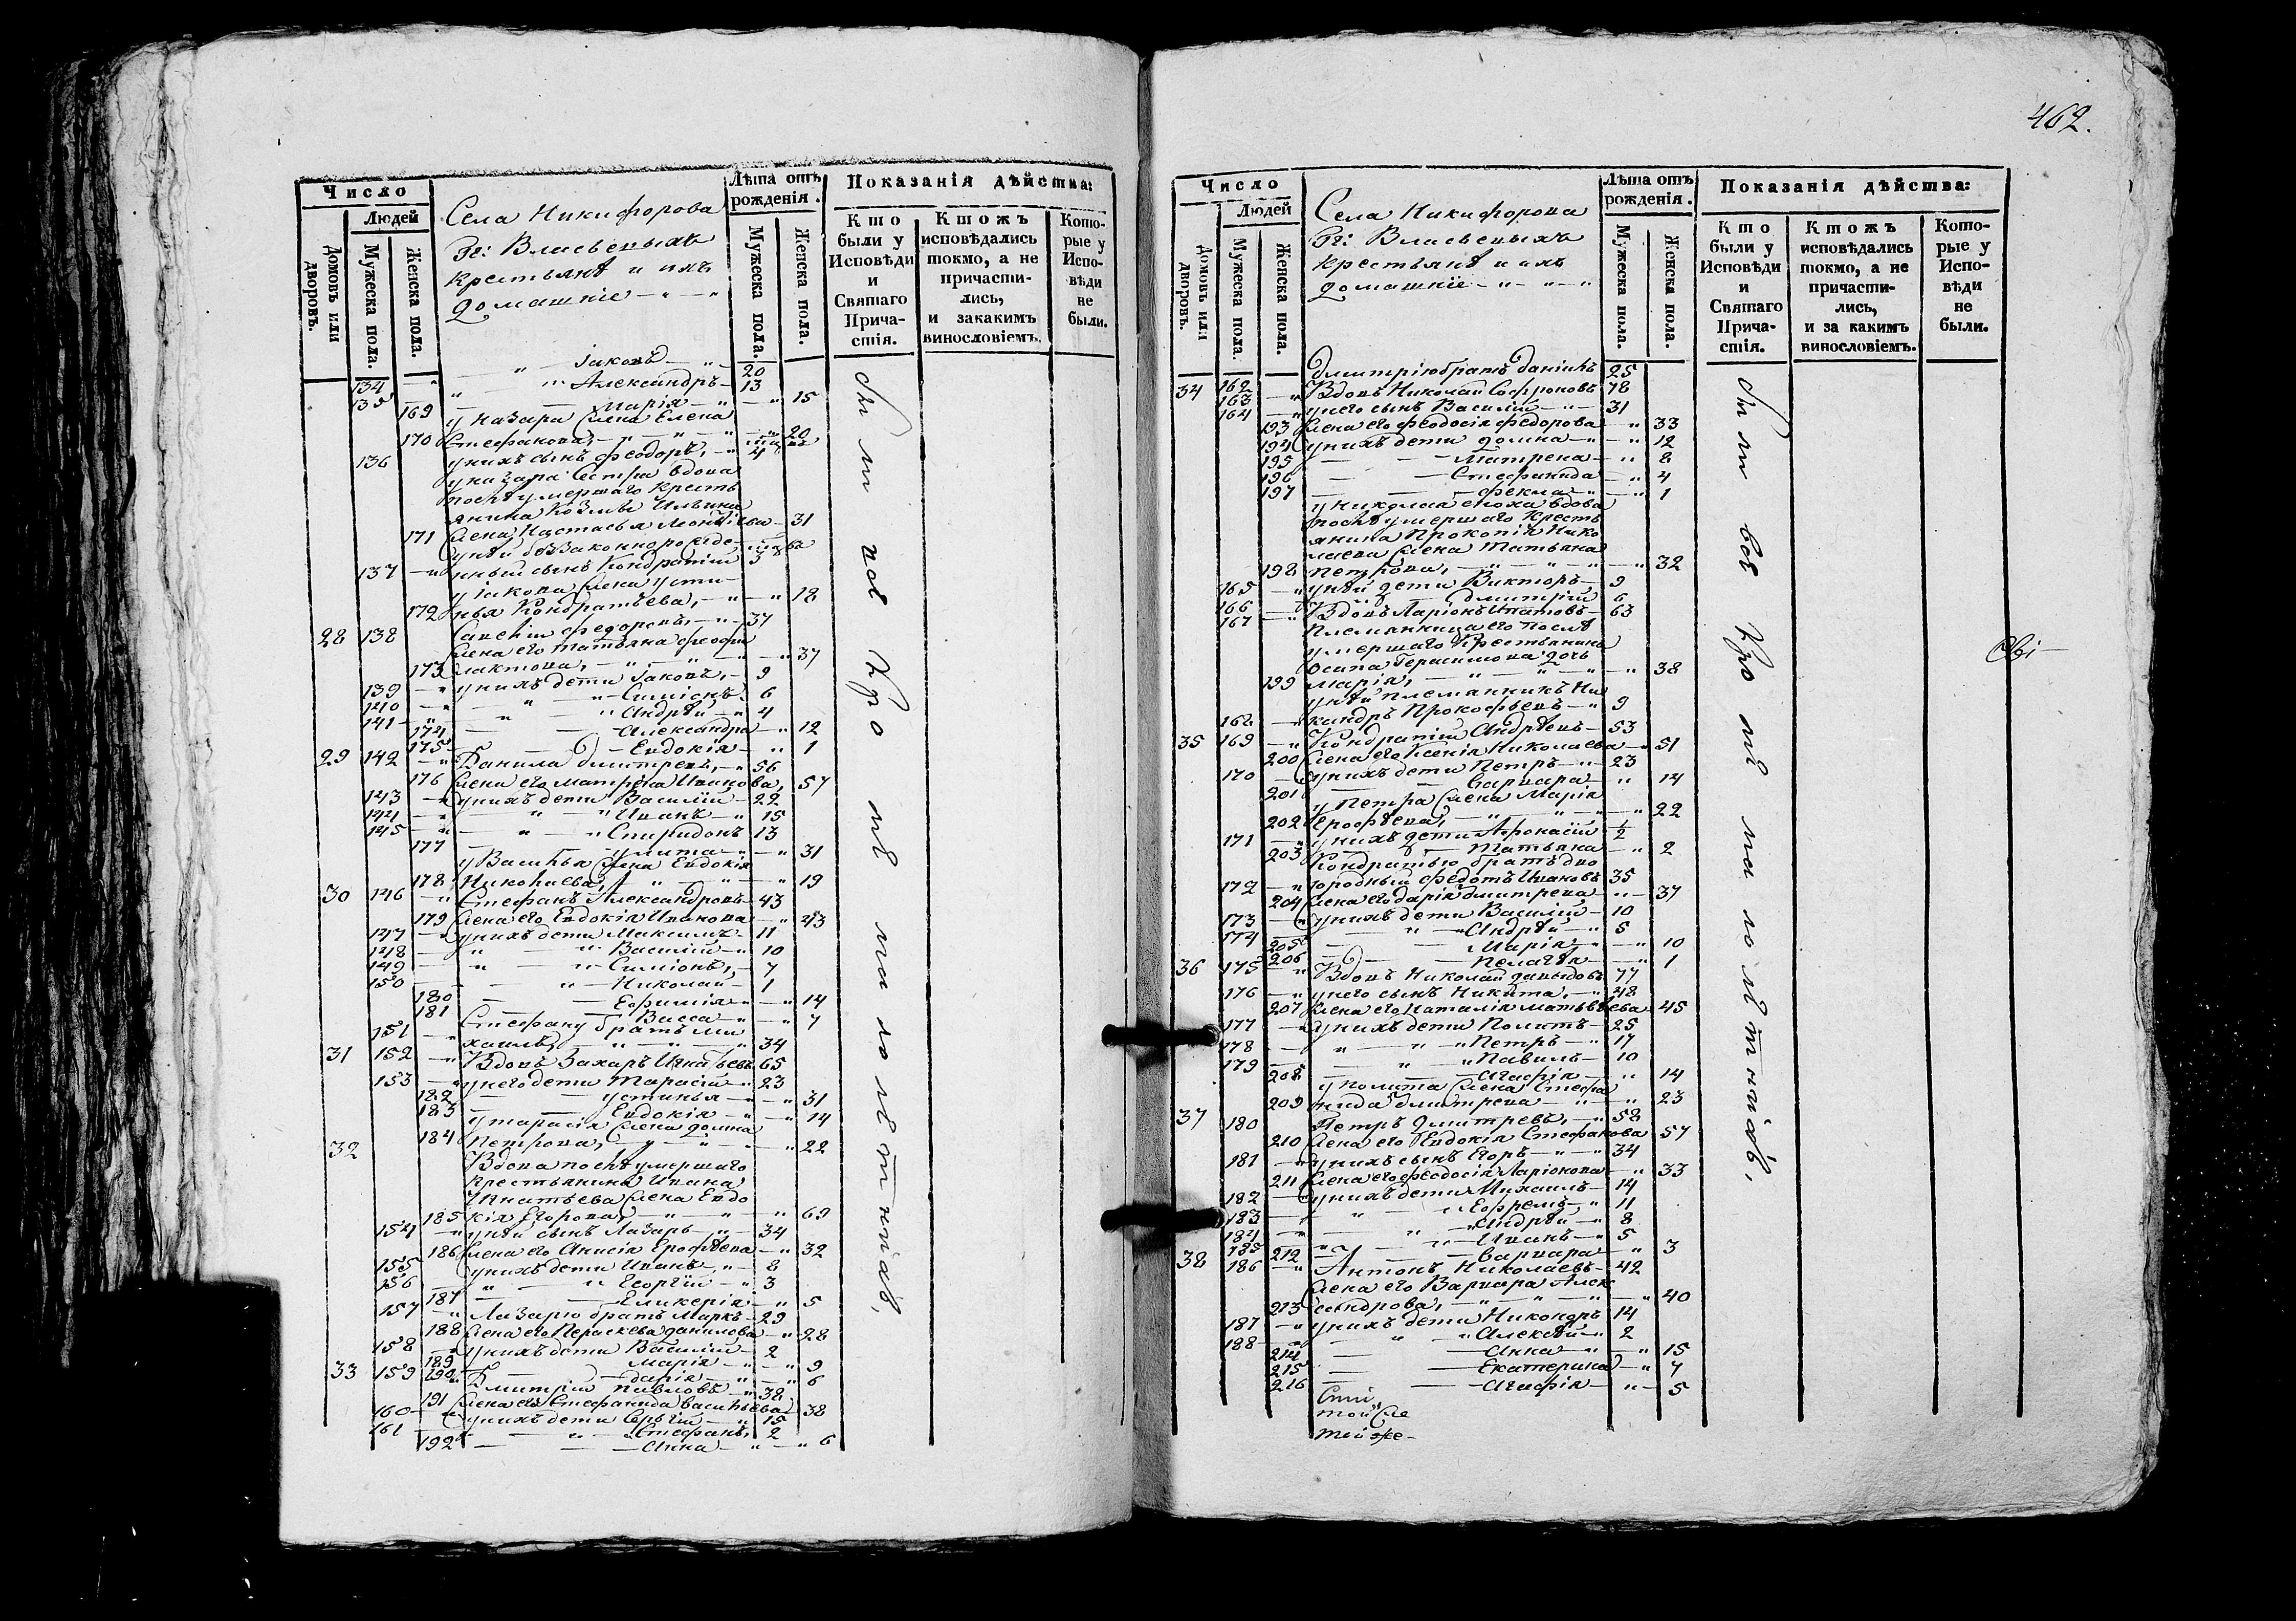 462.
Число
Людей
Домовъ или дворовъ.
Мужеска пола.
Женска пола.
Села Никифорова
Гг: Власьевыхъ
крестьянѣ и ихъ
домашніе – „ – „
Лѣта отъ рожденія.
Мужеска пола.
Женска пола.
Показанія дѣйства:
Кто были у Исповѣди и Святаго Причастія.
Ктожъ исповѣдались токмо, а не причастились, и закакимъ винословіемъ.
Которые у Исповѣди не были.
134 Іаковъ 20
135 Александръ 13
169 Марія 15
у Назара жена Елена
170 Стефанова, 20
136 у нихъ сынъ Феодоръ, 4
у Назара сестра вдова
послѣ умершаго кресть
янина Козмы Ильина
171 жена Настасья 31
у нѣй беззаконнорожде
137 нный сынъ Кондратій 3
у Іакова жена Усти
172 нья Кондратьева, 18
28 138 Савелій Федоровъ, 37
жена его Татьяна Феофи
173 лактова, 37
139 у нихъ дети Іаковъ, 9
140 Симіонъ 6
141 Андрѣй 4
174 Александра 12
175 Евдокія 1
29 142 Данила Дмитревъ, 56
176 жена его Матрена Иванова, 57
143 у нихъ дети Василій 22
144 Иванъ 15
145 Спиридонъ 13
177 Улита 31
у Василья жена Евдокія
178 Николаева, 19
30 146 Стефанъ Александровъ 43
179 жена его Евдокія Иванова 43
147 у нихъ дети Максимъ 11
148 Василій 10
149 Симіонъ, 7
150 Николай 1
180 Ефимія 14
181 Васса 7
Стефану братъ Ми
151 хаилъ, 34
31 152 Вдовъ Захаръ Игнатьевъ 65
153 у него дети Тарасій 23
182 Устинья 31
183 Евдокія 14
у Тарасія жена Домна
184 Петрова, 22
32 Вдова послѣ умершаго
крестьянина Ивана
Игнатьева жена Евдо
185 кія Егорова, 69
154 у нѣй сынъ Лазарь 34
186 жена его Анисія Ерофѣева 32
155 у нихъ дети Иванъ 8
156 Георгій 3
187 Гликерія 5
157 Лазарю братъ Маркъ 29
188 жена его Параскева Данилова 28
158 у нихъ дети Василій 2
189 Марія 9
190 Дарія 6
33 159 Дмитрій Павловъ 38
191 жена его Стефанида Васильева 38
160 у нихъ дети Сергій 15
161 Стефанъ, 2
192 Анна 6
были всѣ кромѣ малолѣтнихъ,
Число
Людей
Домовъ или дворовъ.
Мужеска пола.
Женска пола.
Села Никифорова
Гг: Власьевыхъ
крестьянѣ и ихъ
домашніе – „ – „ – „
Лѣта отъ рожденія.
Мужеска пола.
Женска пола.
Показанія дѣйства:
Кто были у Исповѣди и Святаго Причастія.
Ктожъ исповѣдались токмо, а не причастились, и за какимъ винословіемъ.
Которые у Исповѣди не были.
162 Дмитрію братъ Даніилъ 25
34 163 Вдовъ Николай Софроновъ 78
164 у него сынъ Василій 31
193 жена его Феодосія Федорова 33
194 у нихъ дети Домна 12
195 Матрена 8
196 Стефанида 4
197 Фекла 1
у Николая сноха вдова
послѣ умершаго кресть
янина Прокопія Нико
лаева жена Татьяна
198 Петрова, 32
165 у нѣй дети Викторъ 9
166 Дмитрій 6
167 Вдовъ Ларіонъ Ипатовъ 63
племянница его послѣ
умершаго крестьянина
Осипа Герасимова дочь
199 Марія, 38
у нѣй племянникъ Ни
168 кандръ Прокофьевъ 9
35 169 Кондратій Андрѣевъ 53
200 жена его Ксенія Николаева 51
170 у нихъ дети Петръ 23
201 Варвара 14
у Петра жена Марія
202 Ерофѣева, 22
171 у нихъ дети Афонасій 1/2
203 Татьяна 2
Кондратью братъ дво
172 юродный Федотъ Ивановъ 35
204 жена его Дарія Дмитрева 37
173 у нихъ дети Василій 10
174 Андрѣй 5
205 Марія 10
206 Пелагѣя 1
36 175 Вдовъ Николай Давыдовъ 77
176 у него сынъ Никита, 48
207 жена его Наталія Матвѣева 45
177 у нихъ дети Политъ 25
178 Петръ 17
179 Павилъ 10
208 Агафія 14
у Полита жена Стефа
209 нида Дмитрева 23
37 180 Петръ Дмитревъ, 58
210 жена его Евдокія Стефанова 57
181 у нихъ сынъ Егоръ 34
211 жена его Феодосія Ларіонова 33
182 у нихъ дети Михаилъ 14
183 Ефремъ, 11
184 Андрѣй 8
185 Иванъ 5
212 Варвара 3
38 186 Антонъ Николаевъ 42
жена его Варвара Алек
213 сандрова, 40
187 у нихъ дети Никоноръ 14
188 Алексѣй 2
214 Анна 15
215 Екатерина 7
216 Агафія 5
были всѣ кромѣ малолѣтнихъ,